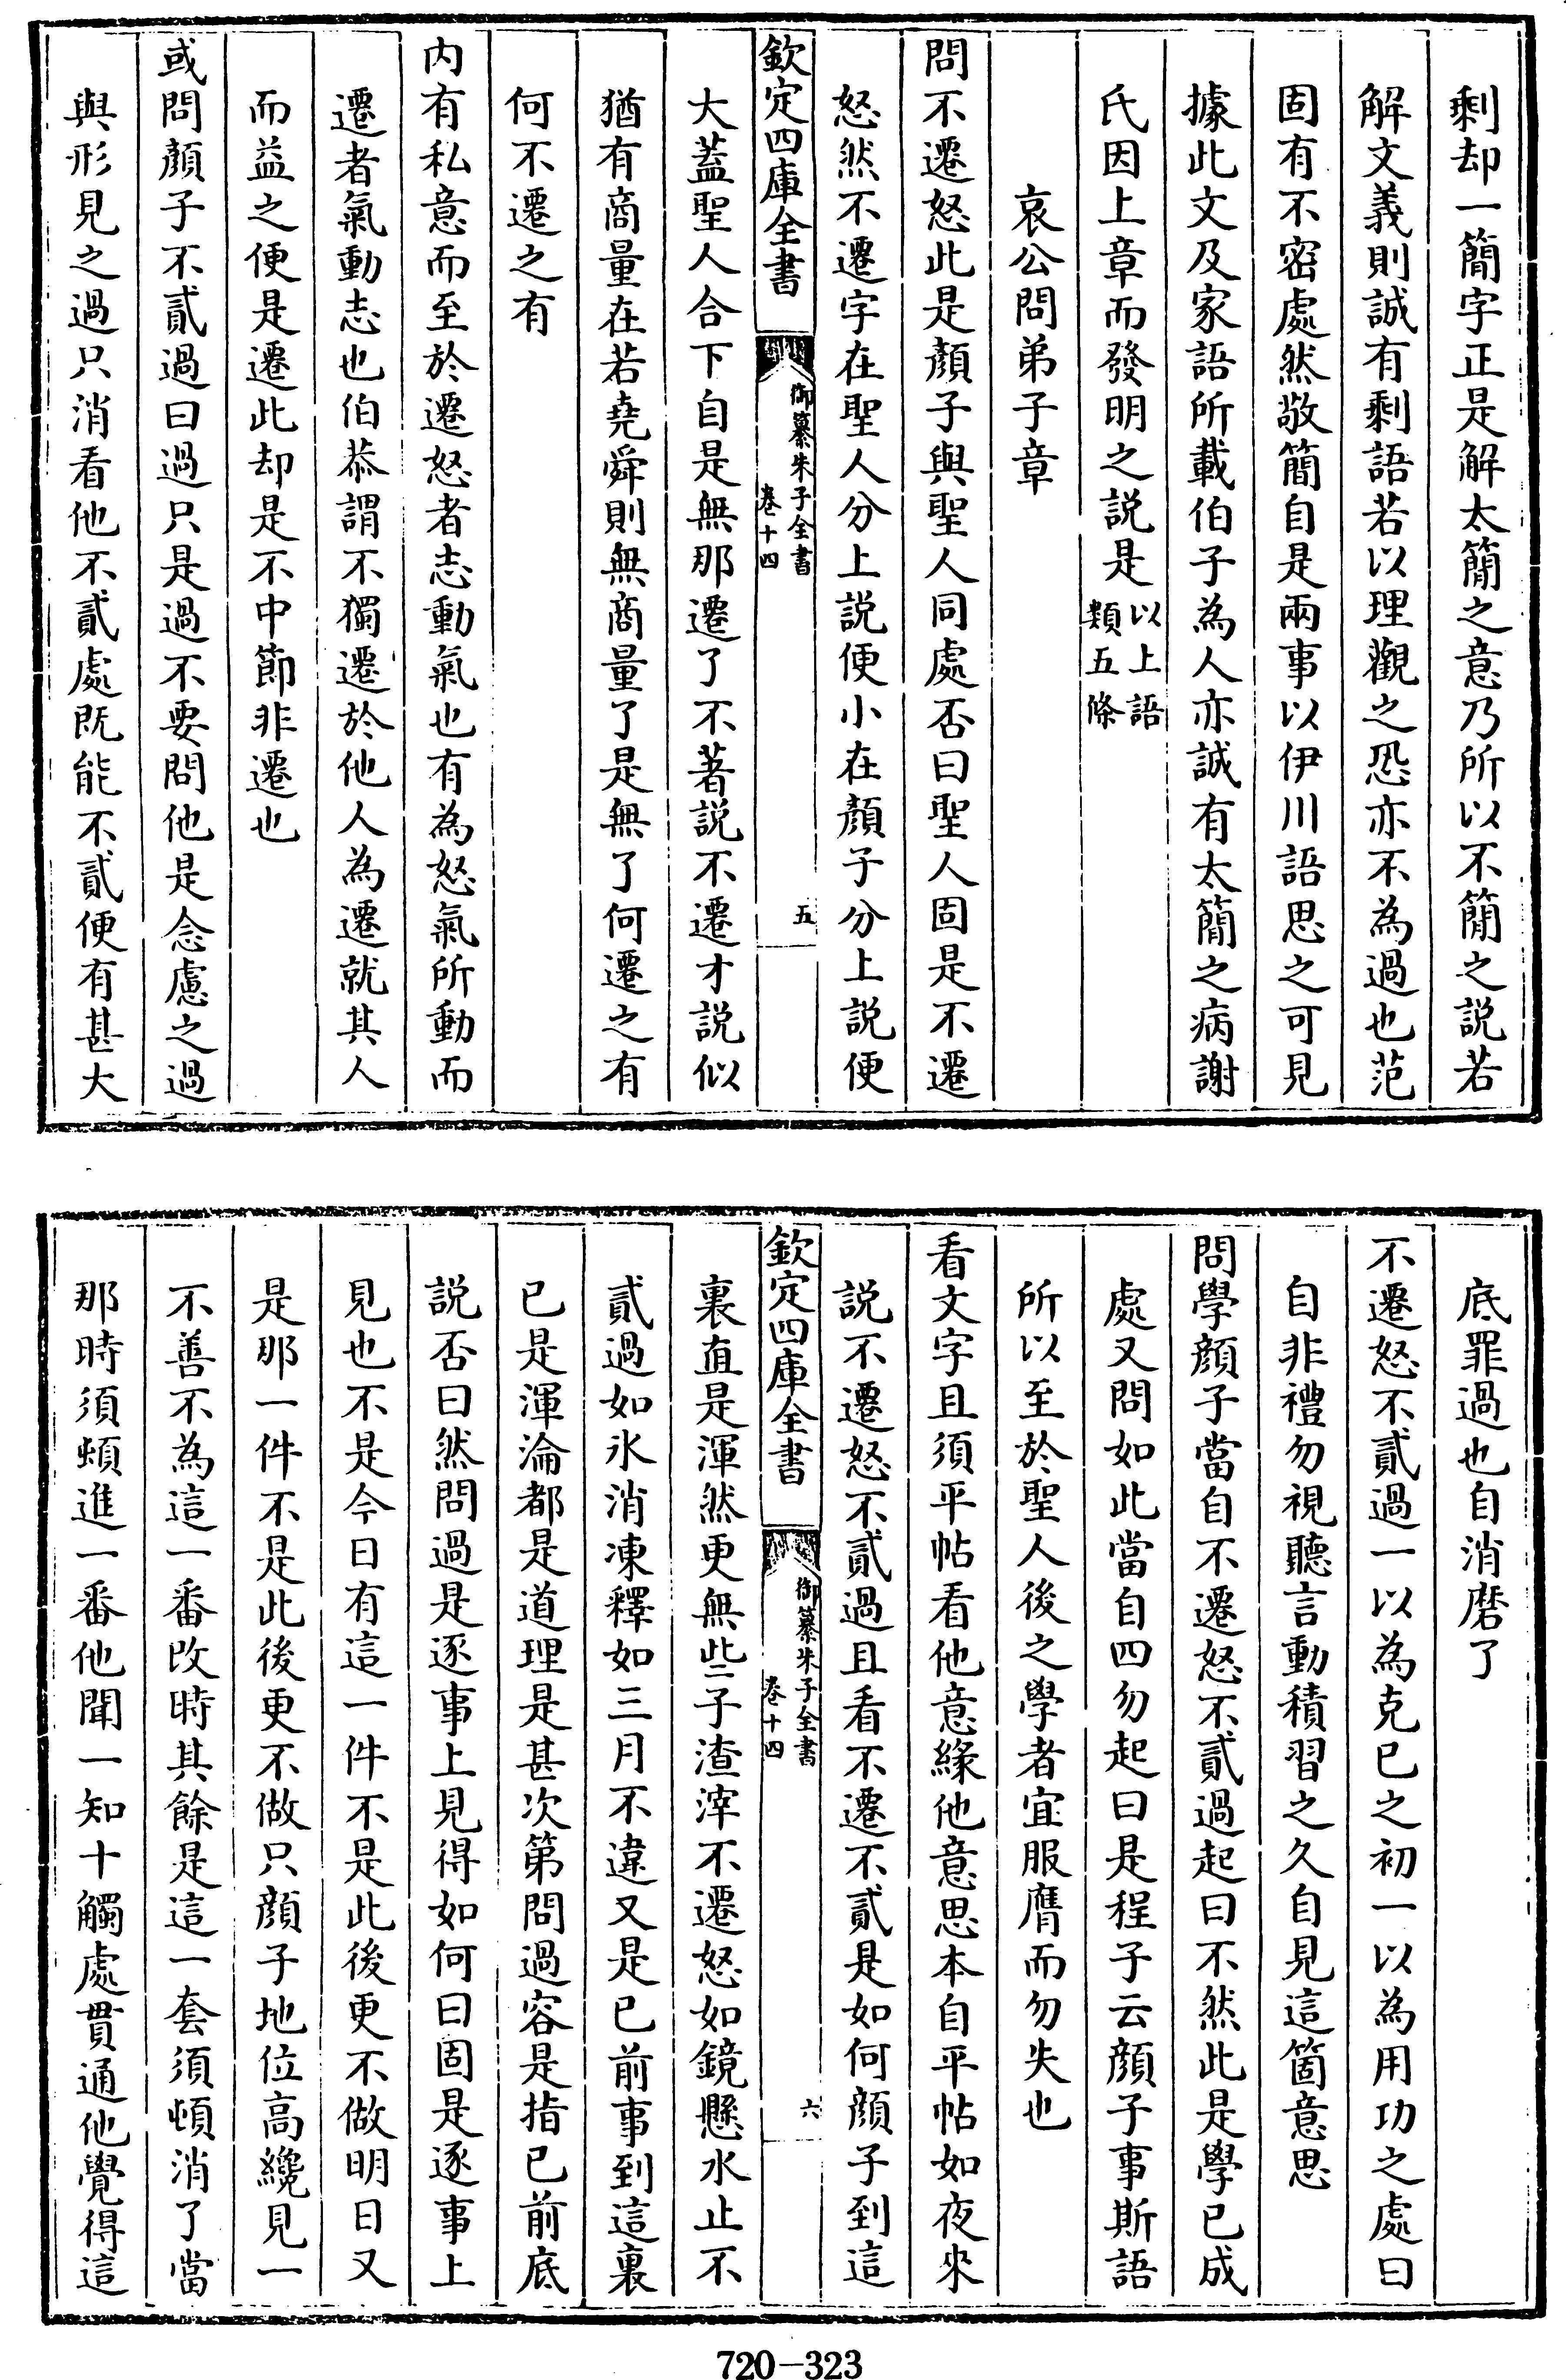 剩却一簡字正是解太簡之意乃所以不簡之説若
解文義則誠有剩語若以理觀之恐亦不為過也范
固有不密處然敬簡自是兩事以伊川語思之可見
據此文及家語所載伯子為人亦誠有太簡之病謝
氏因上章而發明之説是以上語類五條
哀公問弟子章
問不遷怒此是顔子與聖人同處否曰聖人固是不遷
怒然不遷字在聖人分上説便小在顔子分上説便
欽定四庫全書
御纂朱子全書
卷十四
五
大蓋聖人合下自是無那遷了不著説不遷才説似
猶有商量在若堯舜則無商量了是無了何遷之有
何不遷之有
内有私意而至於遷怒者志動氣也有為怒氣所動而
遷者氣動志也伯恭謂不獨遷於他人為遷就其人
而益之便是遷此却是不中節非遷也
或問顔子不貳過曰過只是過不要問他是念慮之過
與形見之過只消看他不貳處既能不貳便有甚大
底罪過也自消磨了
不遷怒不貳過一以為克已之初一以為用功之處曰
自非禮勿視聽言動積習之久自見這箇意思
問學顔子當自不遷怒不貳過起曰不然此是學已成
處又問如此當自四勿起曰是程子云顔子事斯語
所以至於聖人後之學者宜服膺而勿失也
看文字且須平帖看他意緣他意思本自平帖如夜來
説不遷怒不貳過且看不遷不貳是如何顔子到這
欽定四庫全書
御纂朱子全書
卷十四
六
裏直是渾然更無些子渣滓不遷怒如鏡懸水止不
貳過如氷消凍釋如三月不違又是已前事到這裏
已是渾淪都是道理是甚次第問過容是指已前底
説否曰然問過是逐事上見得如何曰固是逐事上
見也不是今日有這一件不是此後更不做明日又
是那一件不是此後更不做只顔子地位高纔見一
不善不為這一番改時其餘是這一套須頓消了當
那時須頓進一番他聞一知十觸處貫通他覺得這
720-323